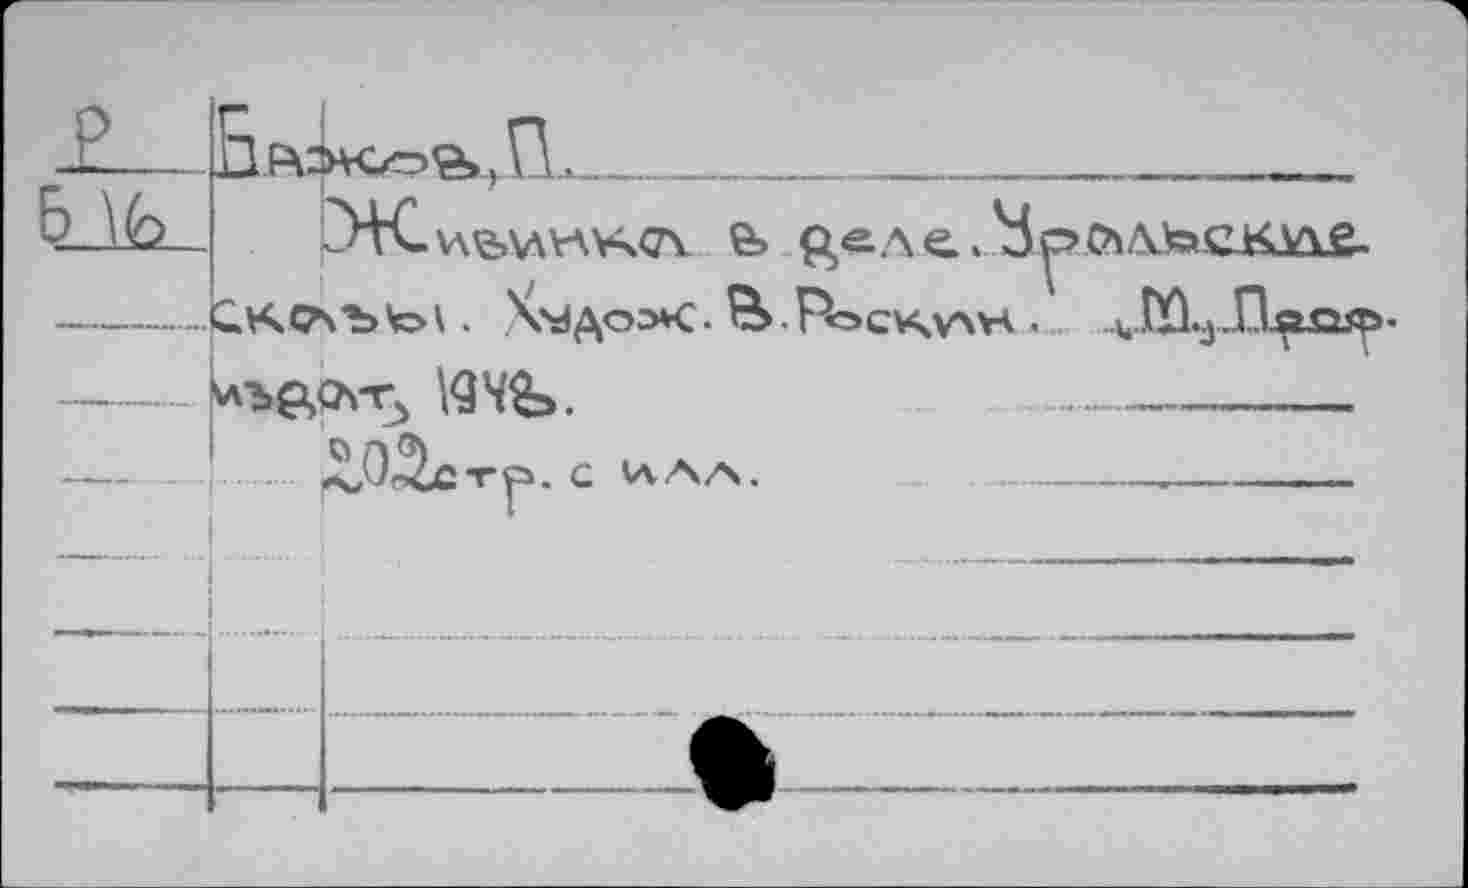 Р
Б 16
Бажов, П.
Живинка в деле. Уральские
сказы. Худож. В. Роскин. М., Проф-
издат, 1943.
202 стр. с илл.